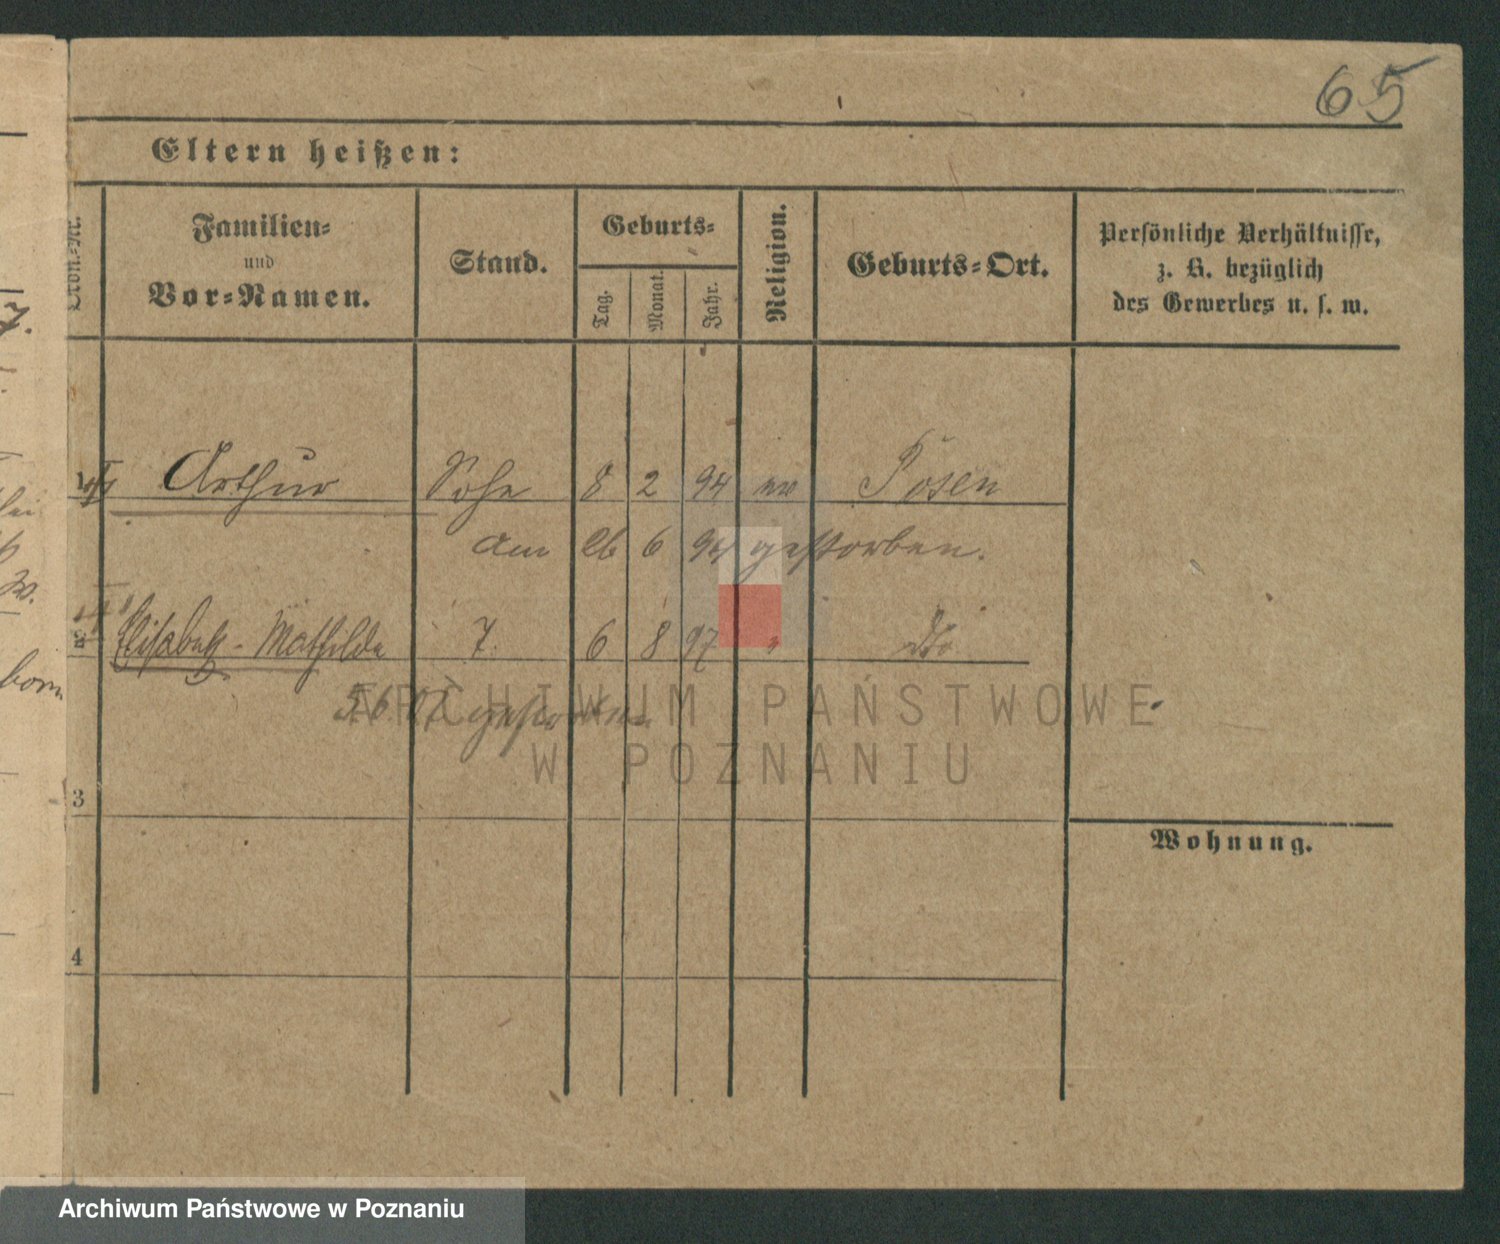 65
Eltern heißen:
Familien-
und
Vor-Namen.
Stand.
Geburts-
Tag.
Monat.
Jahr.
Religion.
Geburts-Ort.
Persönliche Verhältnisse,
z. B. bezüglich
des Gewerbes u. s. w.
7.
1 Arthur Sohn 8 2 94 ev Posen
am 26 6 94 gestorben.
2 Elisabeth - Mathilde T. 6 8 97 " dto
gestorben
ARCHIWUM PAŃSTWOWE
W POZNANIU
3
Wohnung.
4
Archiwum Państwowe w Poznaniu